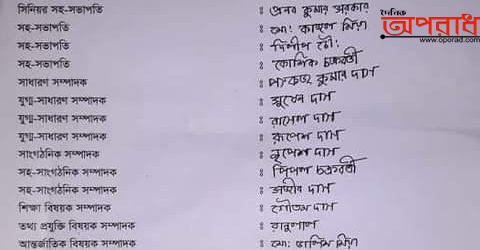 দৈনিক
অপরাধ
www.oporad.com
সিনিয়র সহ-সভাপতি : প্রনব কুমার সরকার
সহ-সভাপতি : মো: কাজল মিয়া
সহ-সভাপতি : দিলীপ
সহ-সভাপতি : কৌশিক চক্রবর্তী
সাধারণ সম্পাদক : পংকজ কুমার দাস
যুগ্ম-সাধারণ সম্পাদক : সুখেন দাস
যুগ্ম-সাধারণ সম্পাদক : রাসেল দাস
যুগ্ম-সাধারণ সম্পাদক : রূপেশ দাস
সাংগঠনিক সম্পাদক : নৃপেশ দাস
সহ-সাংগঠনিক সম্পাদক : পিপল চক্রবর্তী
সহ-সাংগঠনিক সম্পাদক : দাস
শিক্ষা বিষয়ক সম্পাদক : গৌতম দাস
তথ্য প্রযুক্তি বিষয়ক সম্পাদক :
আন্তর্জাতিক বিষয়ক সম্পাদক : মো: মিয়া